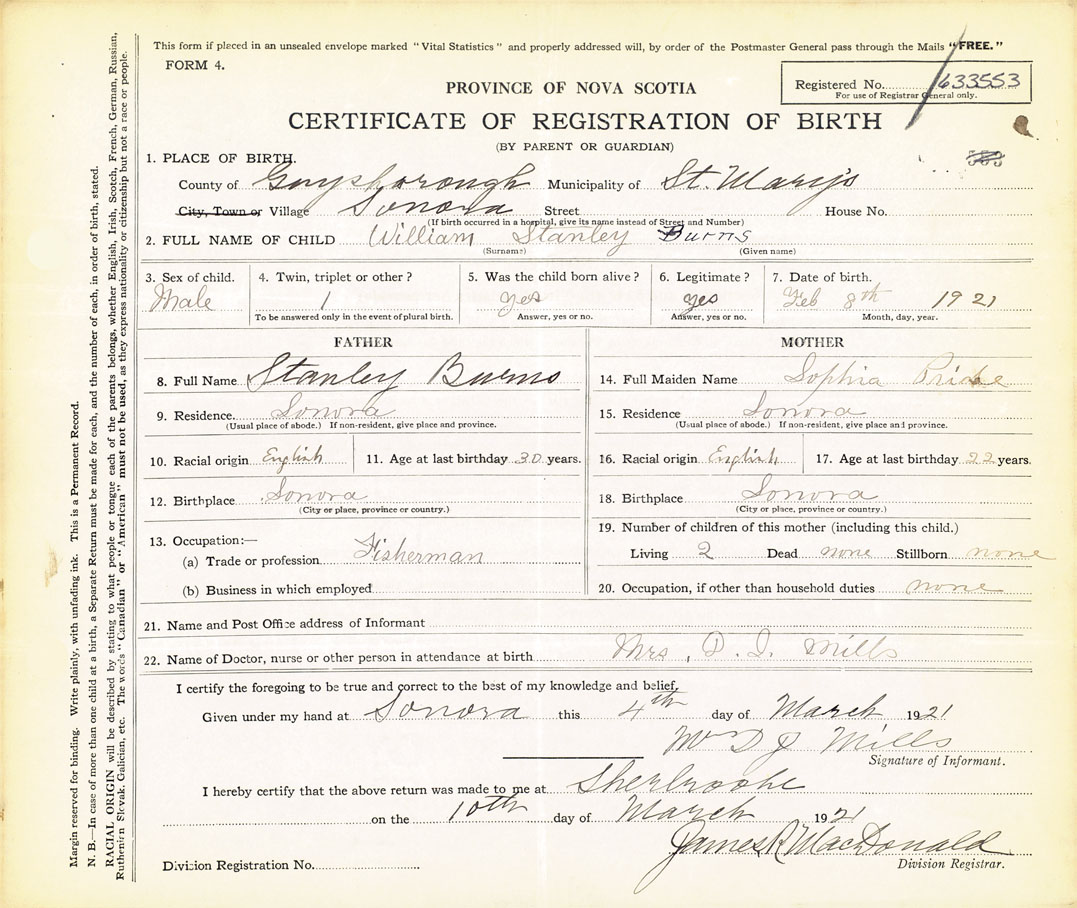 This form if placed in an unsealed envelope marked "Vital Statistics" and properly addressed will, by order of the Postmaster General pass through the Mails "FREE."
FORM 4.
Registered No. 633553
For use of Registrar General only.
PROVINCE OF NOVA SCOTIA
CERTIFICATE OF REGISTRATION OF BIRTH
(BY PARENT OR GUARDIAN)
1. PLACE OF BIRTH.
County of Guysborough Municipality of St. Mary's
City, Town or Village Sonora Street House No.
(If birth occurred in a hospital, give its name instead of Street and Number)
2. FULL NAME OF CHILD William Stanley Burns
(Surname) (Given name)
3. Sex of child. 4. Twin, triplet or other? 5. Was the child born alive? 6. Legitimate? 7. Date of birth.
Male 1 yes yes Feb 8th 1921
To be answered only in the event of plural birth. Answer, yes or no. Answer, yes or no. Month, day, year.
FATHER
8. Full Name Stanley Burns
9. Residence. Sonora
(Usual place of abode.) If non-resident, give place and province.
10. Racial origin English 11. Age at last birthday 30 years.
12. Birthplace Sonora
(City or place, province or country.)
13. Occupation:—
(a) Trade or profession Fisherman
(b) Business in which employed
MOTHER
14. Full Maiden Name Sophia Pride
15. Residence Sonora
(Usual place of abode.) If non-resident, give place and province.
16. Racial origin English 17. Age at last birthday 22 years.
18. Birthplace Sonora
(City or place, province or country.)
19. Number of children of this mother (including this child.)
Living 2 Dead none Stillborn none
20. Occupation, if other than household duties none
21. Name and Post Office address of Informant
22. Name of Doctor, nurse or other person in attendance at birth Mrs. D. J. Mills
I certify the foregoing to be true and correct to the best of my knowledge and belief.
Given under my hand at Sonora this 4th day of March 1921
Mrs D J Mills
Signature of Informant.
I hereby certify that the above return was made to me at Sherbrooke
on the 10th day of March 1921
James R MacDonald
Division Registrar.
Division Registration No.
Margin reserved for binding. Write plainly, with unfading ink. This is a Permanent Record.
N. B.—In case of more than one child at a birth, a Separate Return must be made for each, and the number of each, in order of birth, stated.
RACIAL ORIGIN will be described by stating to what people or tongue each of the parents belongs, whether English, Irish, Scotch, French, German, Russian,
Ruthenian Slovak, Galician, etc. The words "Canadian" or "American" must not be used, as they express nationality or citizenship but not a race or people.